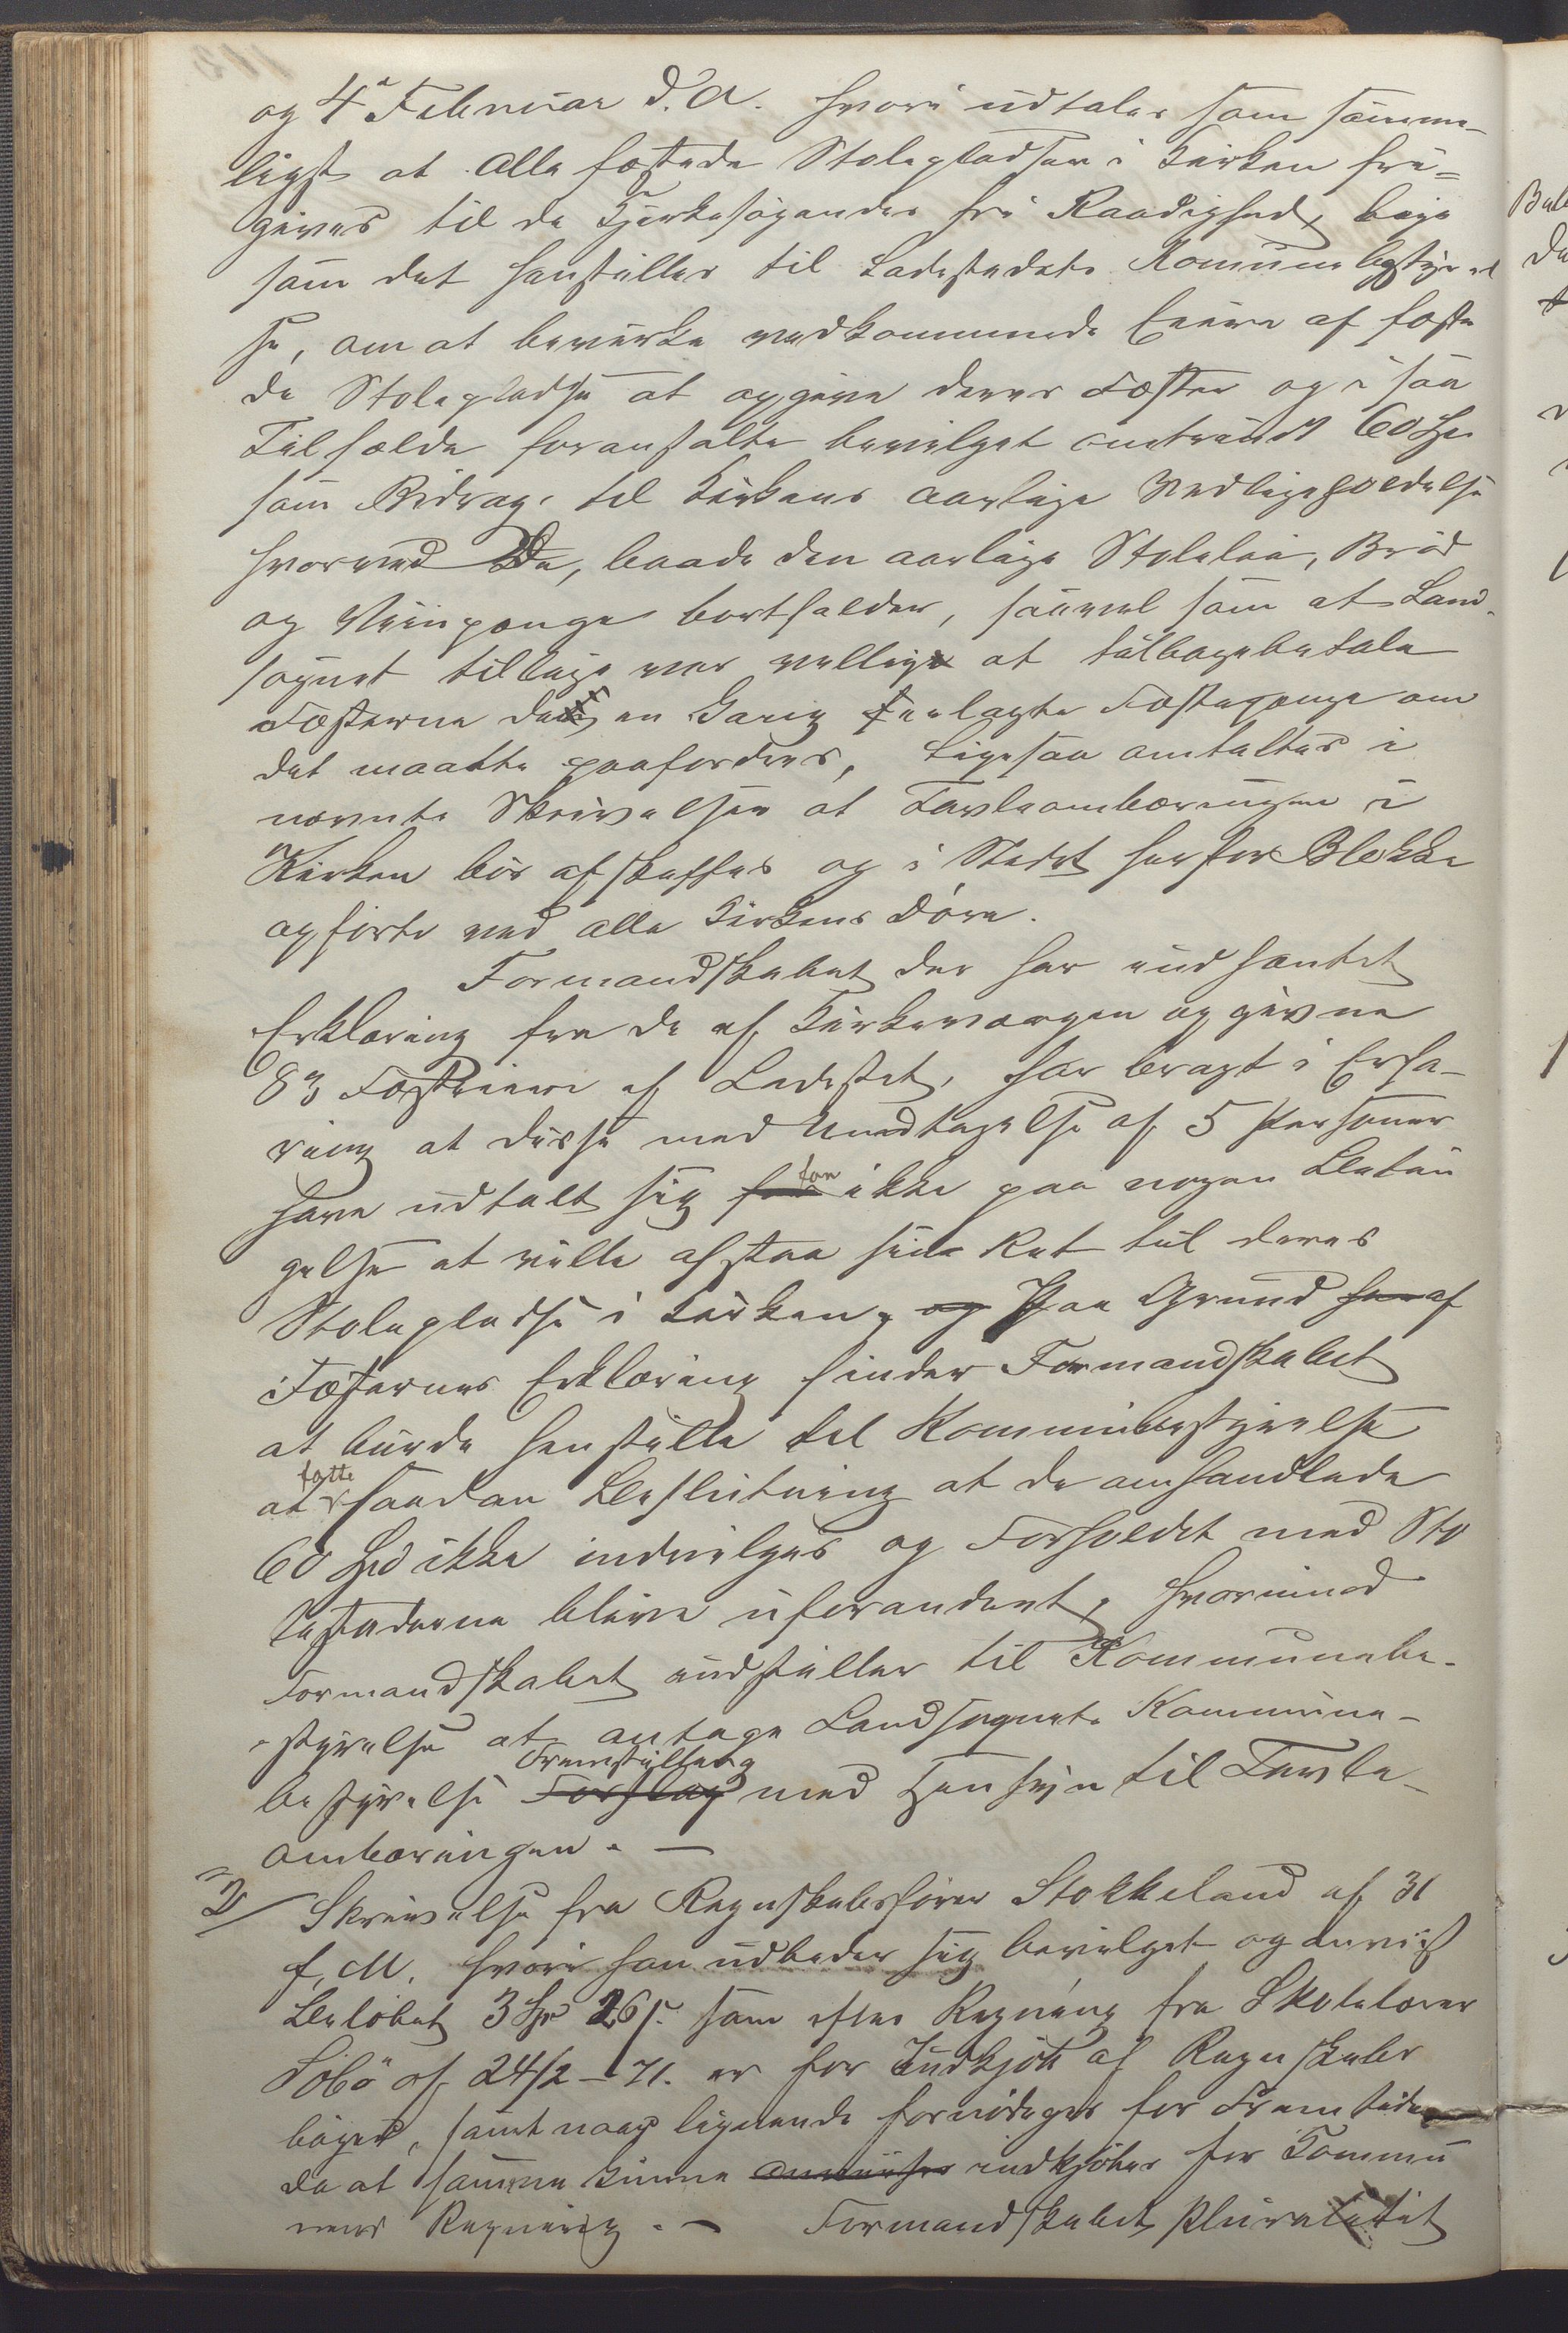 og 4de Februar d. A. hvori udtales som sömme-
ligst at alle fæstede Stolepladser i Kirken fri=
gives til de Kjerkesögendes fri Raadighed, lige
som det henstilles til Ladestedets Komunebestyrel
se, om at bevirke vedkommende Eiere af fæste
de Stolepladse at opgive deres Fæster og i saa
Tilfælde foranstalte bevilget omtrindt 60 Spd
som Bidrag til Kirkens aarlige Vedligeholdelse
hvorved De, baade den aarlige Stoleleie, Bröd
og Viinpenge bortfalder, saavel som at Land-
sognet tillige var villig at tilbagebetale
Fæsterne det en Gang erlagte Fæstepenge om
det maatte paafordres, ligesaa omtaltes i
nævnte Skrivelser at Tavleombæringen i
Kirken bör afskaffes og i Stedet herfor Blokke
opförte ved alle Kirkens Döre.
Formandskabet der har indhentet
Erklæring fra de af Kirkeværgen opgivne
83 Fæsteeiere af Ladestet, har bragt i Erfa-
ring at disse med Undtagelse af 5 Personer
have udtalt sig for ikke paa nogen Betin
gelse at ville afstaa sin Ret til deres
Stolepladse i Kirken, og Paa Grund her af
Fæsternes Erklæring finder Formandskabet
at burde henstille til Kommunebestyrelse
at fatte saadan Beslutning at de omhandlede
60 Spd ikke indvilges og Forholdet med Sto
lestaderne blive uforandert, hvorimod
Formandskabet indstiller til Kommunebe-
styrelse at antage Landsognets Kommune-
bestyrelse Forslag Fremstilling med Hensyn til Tavle-
ombæringen. —
2/ Skrivelse fra Regnskabsförer Stokkeland af 31
f. M. hvori han udbeder sig bevilget og anvist
Belöbet 3 Spd 26 s. som efter Regning fra Skolelærer
Söbö af 24/2-71. er for Indkjöb af Regnskabs
böger, samt naar lignende fornödiges for Fremtiden
da at samme kunne anviises indkjöbes for Commu
nens Regning. — Formandskabets Pluralitet